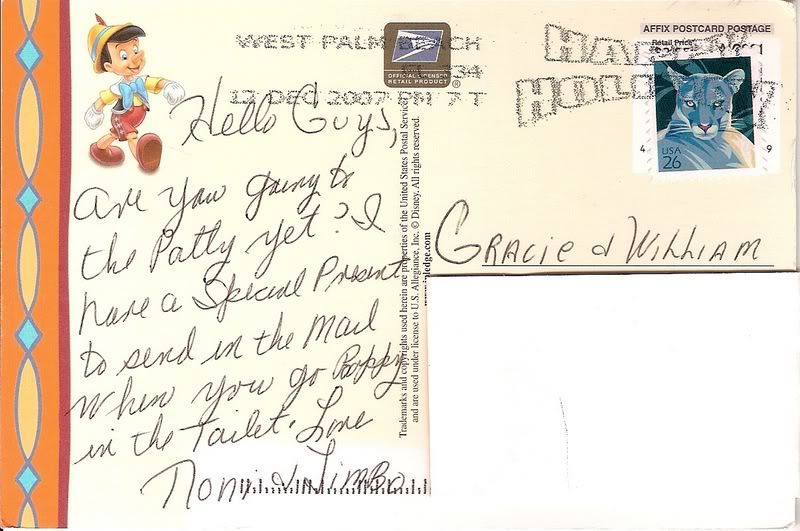 WEST PALM BEACH
334
12 DEC 2007 PM 7 T
OFFICIAL LICENSED
RETAIL PRODUCT
®
AFFIX POSTCARD POSTAGE
Retail Price
HAPPY
HOLIDAYS
4 9
USA
26
Hello Guys,
Are you going to
the Patty yet? I
have a Special Present
to send in the Mail
When you go Poppy
in the Tailet. Love
Noni & Jimbo
GRACIE & WILLIAM
Trademarks and copyrights used herein are properties of the United States Postal Service
and are used under license to U.S. Allegiance, Inc. © Disney. All rights reserved.